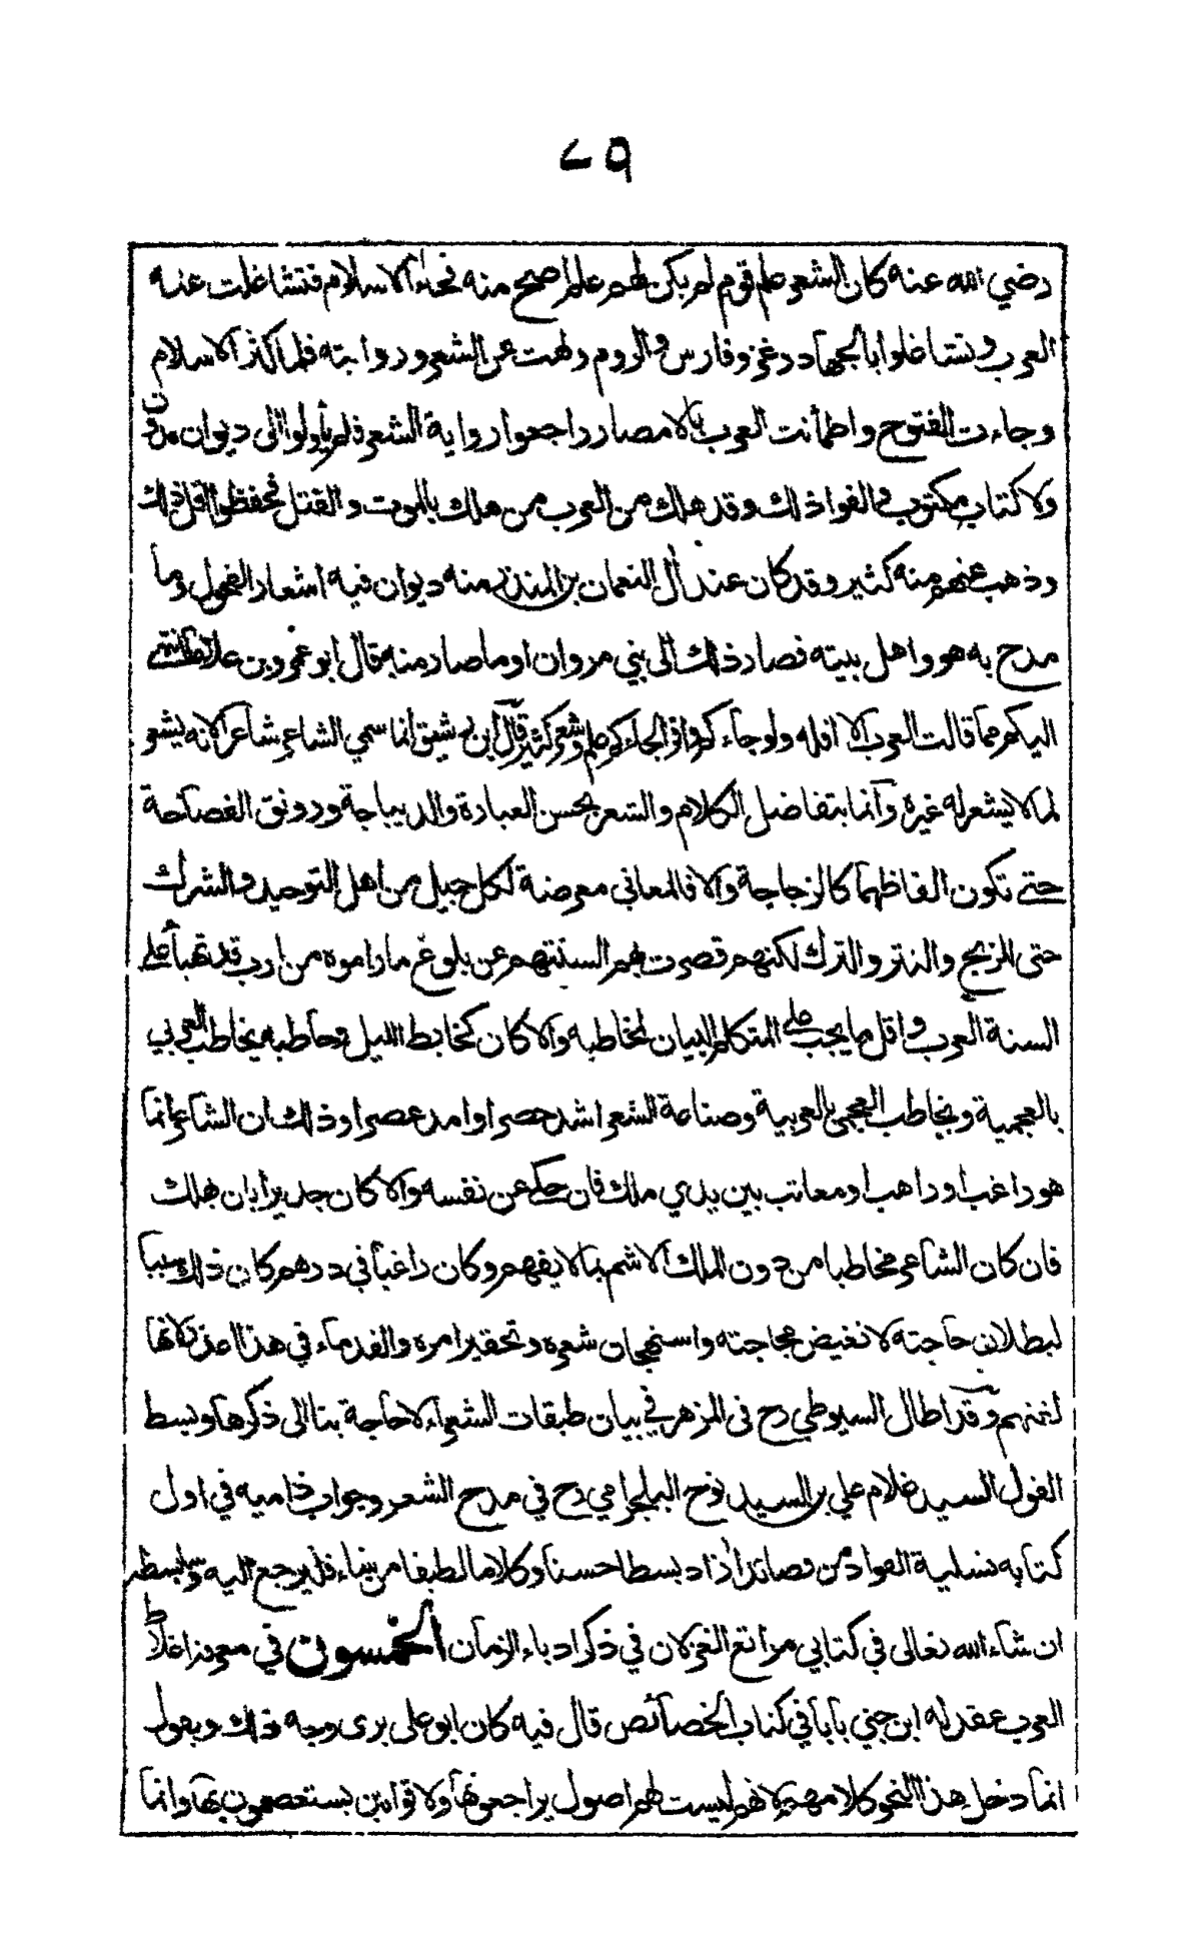 ٧٩
رضي الله عنه كان الشعر علم قوم لم يكن لهم علم اصح منه فجاء الاسلام فتشاغلت عنه
العرب وتشاغلوا بالجهاد وغزو فارس والروم ولهت عن الشعر وروايته فلما كثر الاسلام
وجاءت الفتوح واطمأنت العرب بالامصار راجعوا رواية الشعر فلم يأولوا الى ديوان مدون
ولا كتاب مكتوب والفوا ذلك وقد هلك من العرب من هلك بالموت والقتل فحفظوا اقل ذلك
وذهب عنهم منه كثير وقد كان عند أل النعمان بن المنذر منه ديوان فيه اشعار الفحول وما
مدح به هو واهل بيته فصار ذلك الى بني مروان او ما صار منه قال ابو عمرو بن علاء ما انتهى
اليكم مما قالت العرب الا اقله ولو جاءكم وافرا لجاءكم علم وشعر كثير قال ابن رشيق انما سمي الشاعر شاعرا لانه يشعر
لما لا يشعر له غيره وانما يتفاضل الكلام والشعر بحسن العبارة والديباجة ورونق الفصاحة
حتى تكون الفاظهما كالزجاجة والا فالمعاني معرضة لكل جيل من اهل التوحيد والشرك
حتى للزبج والتتر والترك لكنهم قصرت بهم السنتهم عن بلوغ ما راموه من ارب قد تهيأ على
السنة العرب واقل ما يجب على المتكلم البيان لمخاطبه والا كان كخابط الليل وحاطبه يخاطب العربي
بالعجمية ويخاطب العجمي بالعربية وصناعة الشعر اشد حصرا وامد عصرا وذلك ان الشاعر انما
هو راغب او راهب او معاتب بين يدي ملك فان حكى عن نفسه والا كان جديرا بان يهلك
فان كان الشاعر مخاطبا من دون الملك الاشم بما لا يفهم وكان راغبا في درهم كان ذلك سببا
لبطلان حاجته لا تغيض مجاجته واستهجان شعره وتحقير امره والقدماء في هذا اعذر لانها
لغتهم وقد اطال السيوطي رح في المزهر في بيان طبقات الشعراء لا حاجة بنا الى ذكرها وبسط
القول السيد غلام علي بن السيد نوح البلجرامي رح في مدح الشعر وجواب ذاميه في اول
كتابه تسلية الفواد من قصائد أزاد بسطا حسنا وكلاما لطيفا من يشاء فليرجع اليه وسابسطه
ان شاء الله تعالى في كتابي مراتع الغزلان في ذكر ادباء الزمان الخمسون في معرفة اغلاط
العرب عقد له ابن جني بابا في كتاب الخصائص قال فيه كان ابو علي يرى وجه ذلك ويقول
انما دخل هذا النحو كلامهم لانهم ليست لهم اصول يراجعونها ولا قوانين يستعصمون بها وانما